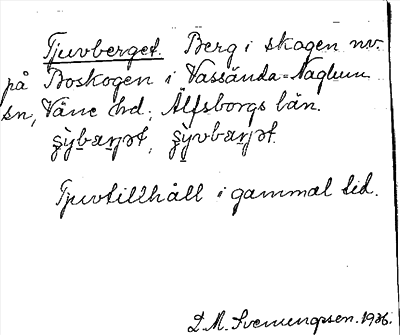 Tjuvberget. Berg i skogen nv.
på Boskogen i Vassända-Naglum
sn, Väne hd, Älfsborgs län.
Tjuvtillhåll i gammal tid.
D. M. 1926.